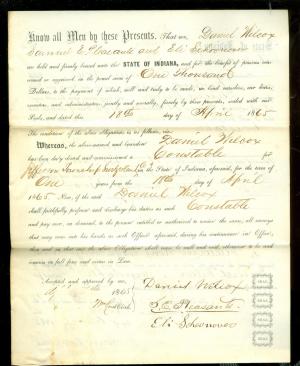 Know all Men by these Presents, That we, Daniel Wilcox
Samuel E. Pleasants and Eli Schoonover
are held and firmly bound unto the STATE OF INDIANA, and for the benefit of persons
in the penal sum of One Thousand
Dollars, to the payment of which, well and truly to be made, we bind ourselves, our heirs,
executors, and administrators, jointly and severally, firmly by these presents, sealed with our
Seals, and dated this 18th day of April 1865
The condition of the above obligation is as follows, viz:
Whereas, the above-named and bounden Daniel Wilcox
has been duly elected and commissioned a Constable for
Township, State of Indiana, aforesaid, for the term of
One years from the 18th day of April
1865 Now, if the said Daniel Wilcox
shall faithfully perform and discharge his duties as such Constable
and pay over, on demand, to the person entitled or authorized to receive the same, all moneys
that may come into his hands as such Officer aforesaid, during his continuance in Office,
then, and in that case the above Obligation shall cease, be null and void, otherwise to be and
remain in full force and virtue in Law.
Accepted and approved by me, Daniel Wilcox
1865 S. E. Pleasants
Clerk Eli Schoonover